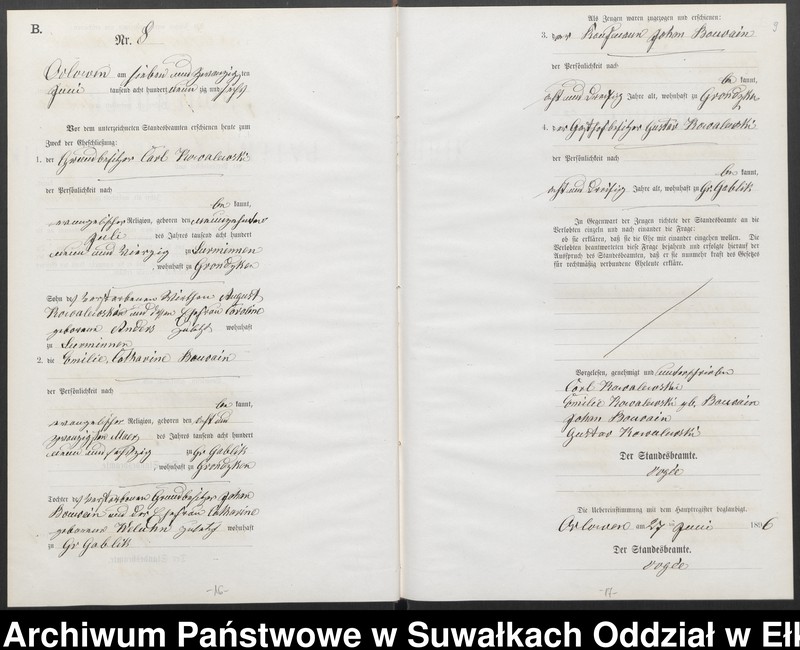 B.
Nr. 8
Orlowen am sieben und zwanzigsten
Juni tausend acht hundert neunzig und sechs
Vor dem unterzeichneten Standesbeamten erschienen heute zum
Zweck der Eheschließung:
1. der Grundbesitzer Carl Kowalewski
der Persönlichkeit nach
be kannt,
evangelischer Religion, geboren den neunzehnten
Juli des Jahres tausend acht hundert
neun und vierzig zu Surminnen
, wohnhaft zu Grondzken
Sohn des verstorbenen Wirthen August
Kowalewski und dessen Ehefrau Caroline
geborene Anders zuletzt wohnhaft
zu Surminnen
2. die Emilie, Catharine Bouvain
der Persönlichkeit nach
be kannt,
evangelischer Religion, geboren den acht und
zwanzigsten März des Jahres tausend acht hundert
neun und sechszig zu Gr Gablik
, wohnhaft zu Grondzken
Tochter des verstorbenen Grundbesitzer Johan
Bouvain und der Ehefrau Catharine
geborene zuletzt wohnhaft
zu Gr Gablik
-16-
9
Als Zeugen waren zugezogen und erschienen:
3. der Kaufmann Johann Bouvain
der Persönlichkeit nach
be kannt,
acht und dreißig Jahre alt, wohnhaft zu Grondzken
4. der Gasthofbesitzer Gustav Kowalewski
der Persönlichkeit nach
be kannt,
acht und dreißig Jahre alt, wohnhaft zu Gr. Gablik
In Gegenwart der Zeugen richtete der Standesbeamte an die
Verlobten einzeln und nach einander die Frage:
ob sie erklären, daß sie die Ehe mit einander eingehen wollen. Die
Verlobten beantworteten diese Frage bejahend und erfolgte hierauf der
Ausspruch des Standesbeamten, daß er sie nunmehr kraft des Gesetzes
für rechtmäßig verbundene Eheleute erkläre.
Vorgelesen, genehmigt und unterschrieben
Carl Kowalewski
Emilie Kowalewski gb. Bouvain
Johann Bouvain
Gustav Kowalewski
Der Standesbeamte.
Vogée
Die Uebereinstimmung mit dem Hauptregister beglaubigt.
Orlowen am 27 Juni 1896
Der Standesbeamte.
Vogée
-17-
Archiwum Państwowe w Suwałkach Oddział w Ełk